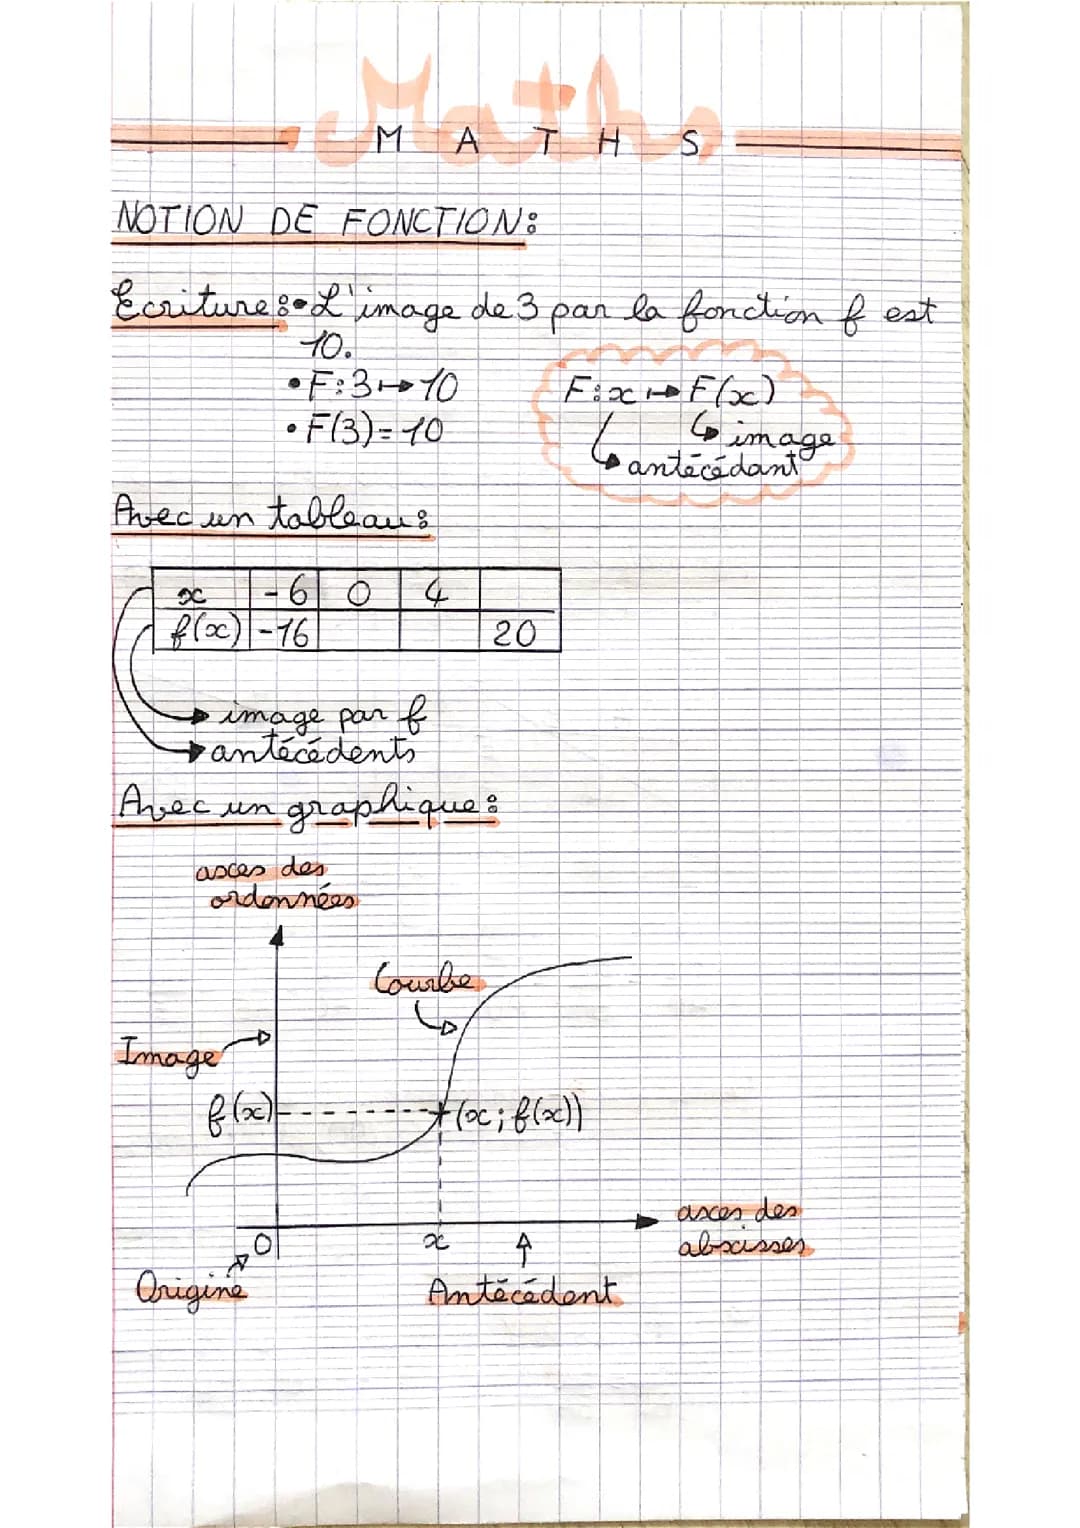 Maths
M A T H S
NOTION DE FONCTION:
Ecriture: • L'image de 3 par la fonction f est
10.
• F: 3 ↦ 10
• F(3) = 10
F: x ↦ F(x)
↳ image
↳ antécédant
Avec un tableau:
x -6 0 4
f(x) -16 20
→ image par f
→ antécédents
Avec un graphique:
axes des
ordonnées
Courbe
Image
f(x)
(x; f(x))
axes des
abscisses
O
x
Origine
Antécédent